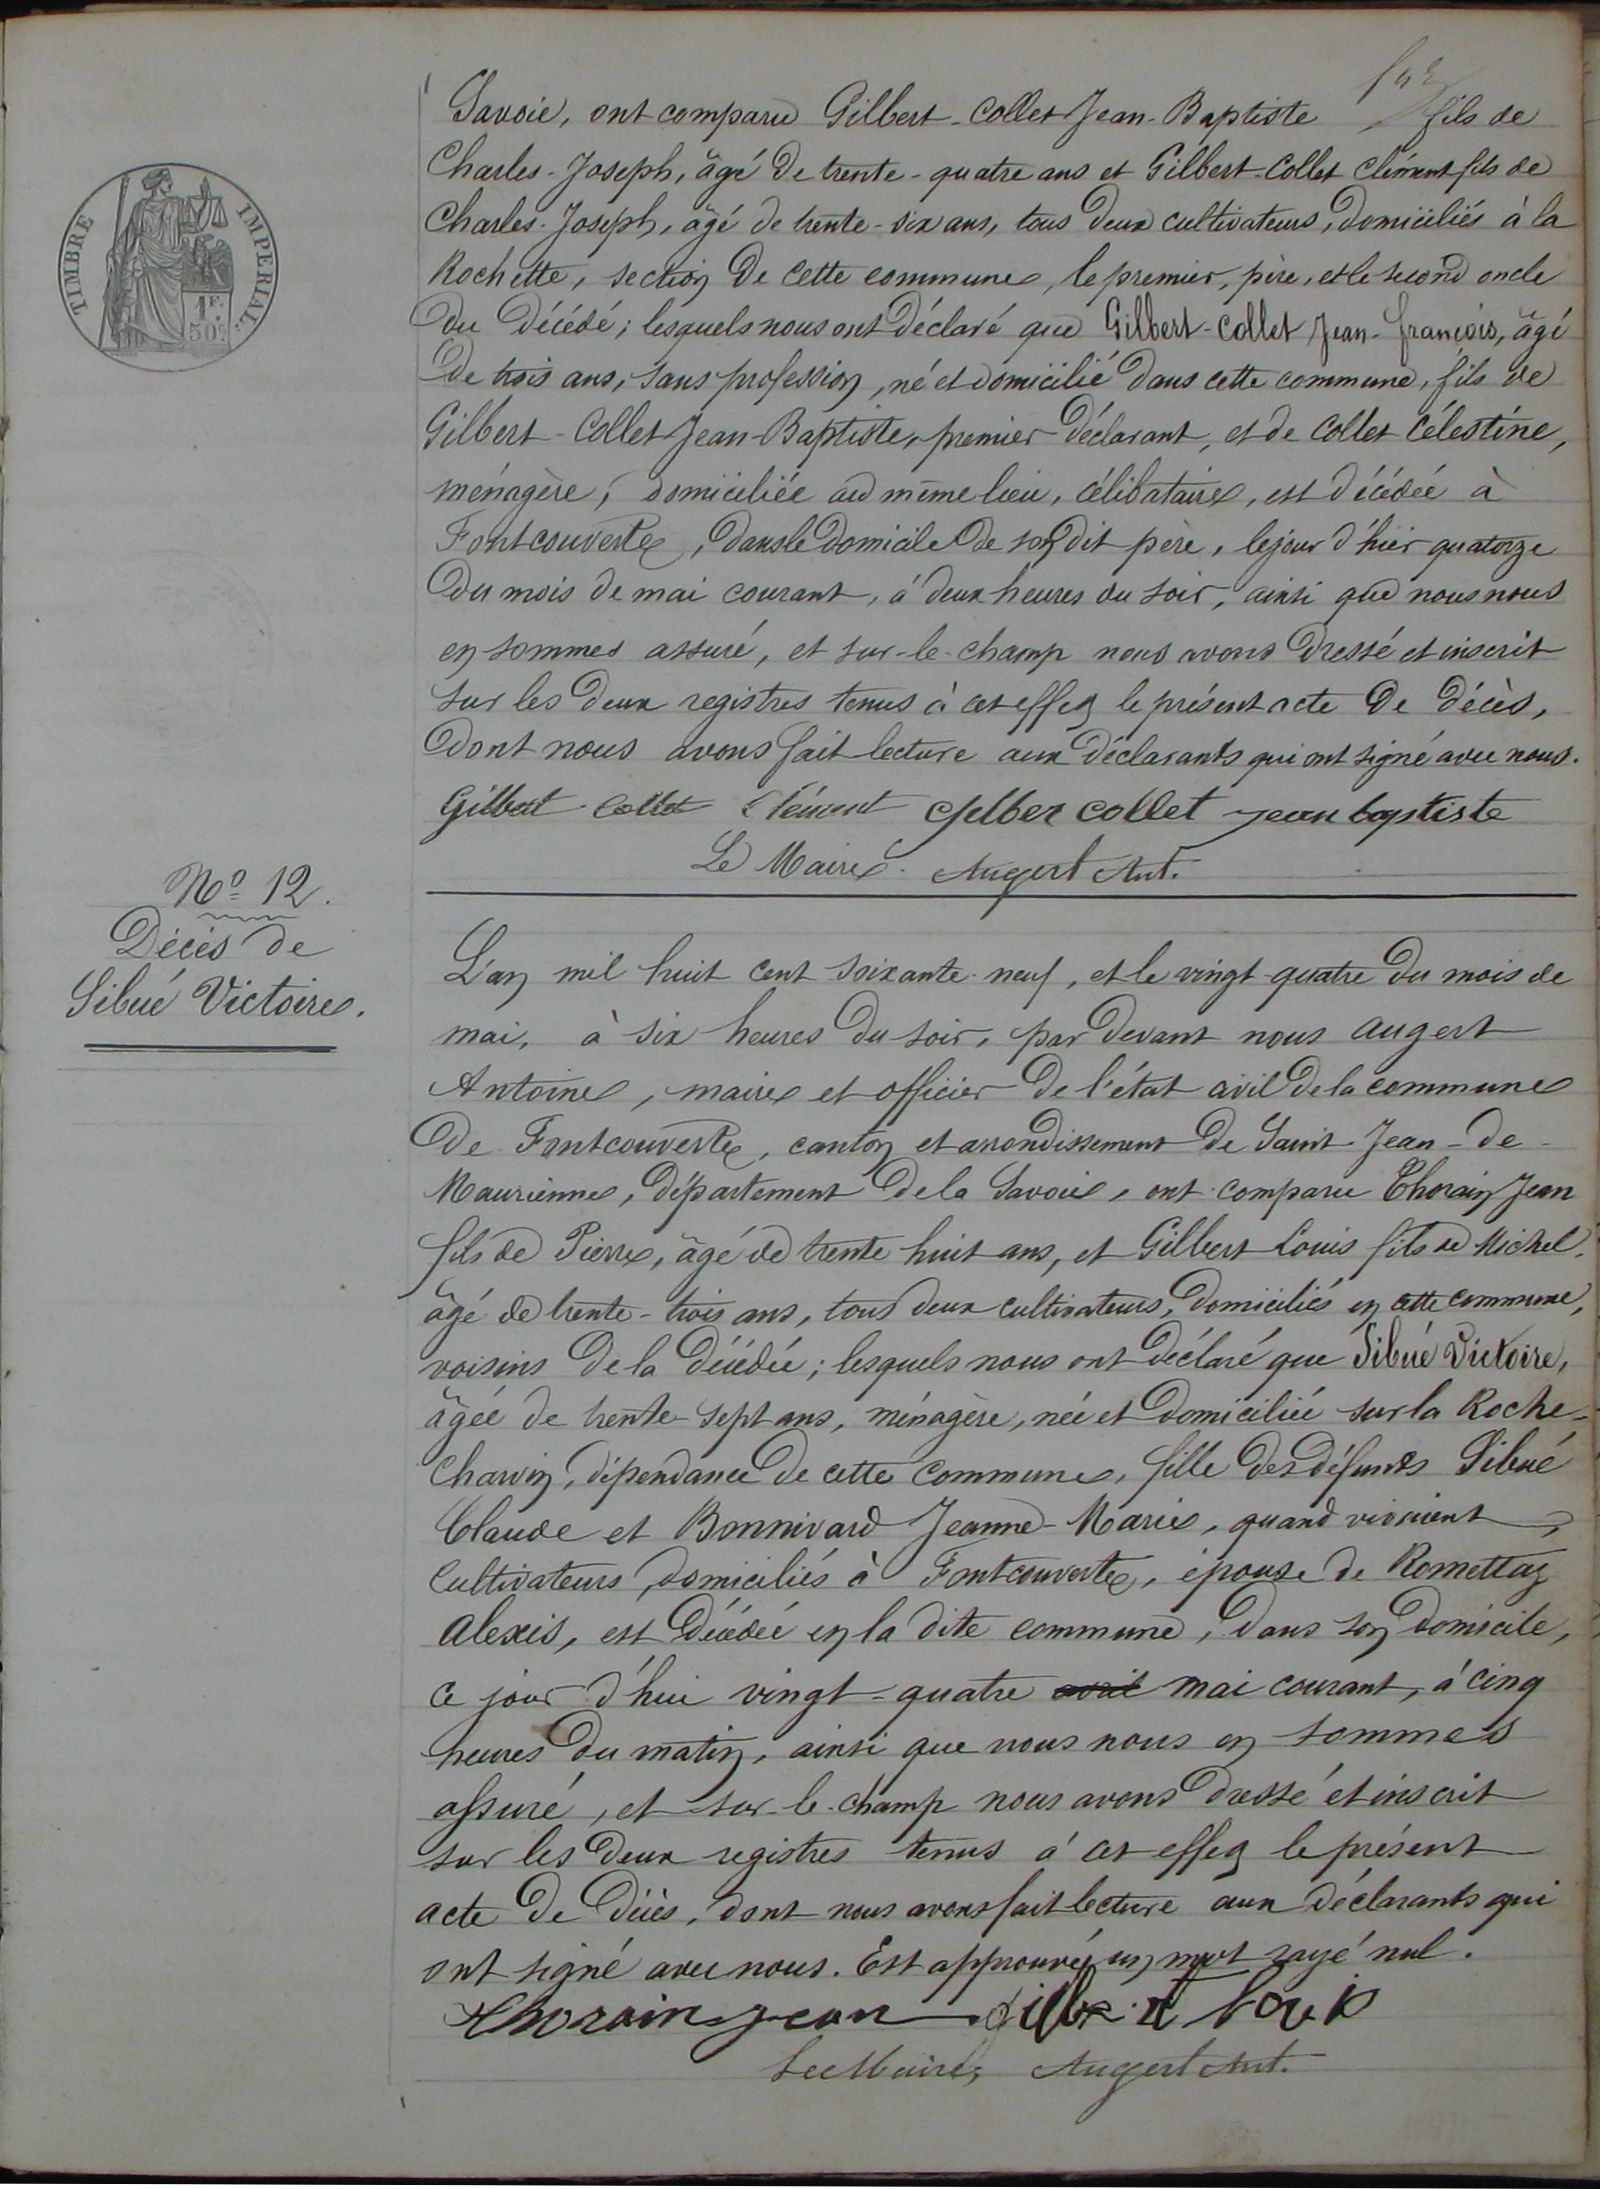 TIMBRE IMPERIAL.
1F.
50c
Savoie, ont comparu Gilbert-Collet Jean-Baptiste fils de
Charles-Joseph, âgé de trente-quatre ans et Gilbert-Collet Clément fils de
Charles-Joseph, âgé de trente-six ans, tous deux cultivateurs, domiciliés à la
Rochette, section de cette commune, le premier, père, et le second oncle
du décédé; lesquels nous ont déclaré que Gilbert-Collet Jean-François, âgé
de trois ans, sans profession, né et domicilié dans cette commune, fils de
Gilbert-Collet Jean-Baptiste, premier déclarant, et de Collet Célestine,
ménagère, domiciliée au même lieu, célibataire, est décédée à
Fontcouverte, dans le domicile de son dit père, le jour d'hier quatorze
du mois de mai courant, à deux heures du soir, ainsi que nous nous
en sommes assuré, et sur-le-champ nous avons dressé et inscrit
sur les deux registres tenus à cet effet le présent acte de décès,
dont nous avons fait lecture aux déclarants qui ont signé avec nous.
Gilbert-Collet Clément Gilber Collet jean baptiste
Le Maire. Augert Ant.
No 12.
Décès de
Sibué Victoire.
L'an mil huit cent soixante-neuf, et le vingt-quatre du mois de
mai, à six heures du soir, par devant nous Augert
Antoine, maire et officier de l'état civil de la commune
de Fontcouverte, canton et arrondissement de Saint-Jean-de-
Maurienne, département de la Savoie, ont comparu Thorain Jean
fils de Pierre, âgé de trente huit ans, et Gilbert Louis fils de Michel,
âgé de trente-trois ans, tous deux cultivateurs, domiciliés en cette commune,
voisins de la décédée; lesquels nous ont déclaré que Sibué Victoire,
âgée de trente-sept ans, ménagère, née et domiciliée sur la Roche-
Charvin, dépendance de cette commune, fille des défunts Sibué
Claude et Bonnivard Jeanne-Marie, quand vivaient
cultivateurs, domiciliés à Fontcouverte, épouse de Romettaz
Alexis, est décédée en la dite commune, dans son domicile,
ce jour d'hui vingt-quatre avril mai courant, à cinq
heures du matin, ainsi que nous nous en sommes
assuré, et sur-le-champ nous avons dressé et inscrit
sur les deux registres tenus à cet effet le présent
acte de décès, dont nous avons fait lecture aux déclarants qui
ont signé avec nous. Est approuvé un mot rayé nul.
Thorain Jean Gilbert Louis
Le Maire, Augert Ant.